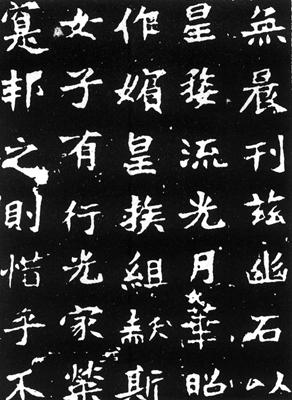 無晨刊茲幽石以
星婺流光月華昭
作媚皇族組献斯
女子有行光家榮
寔邦之則惜乎不